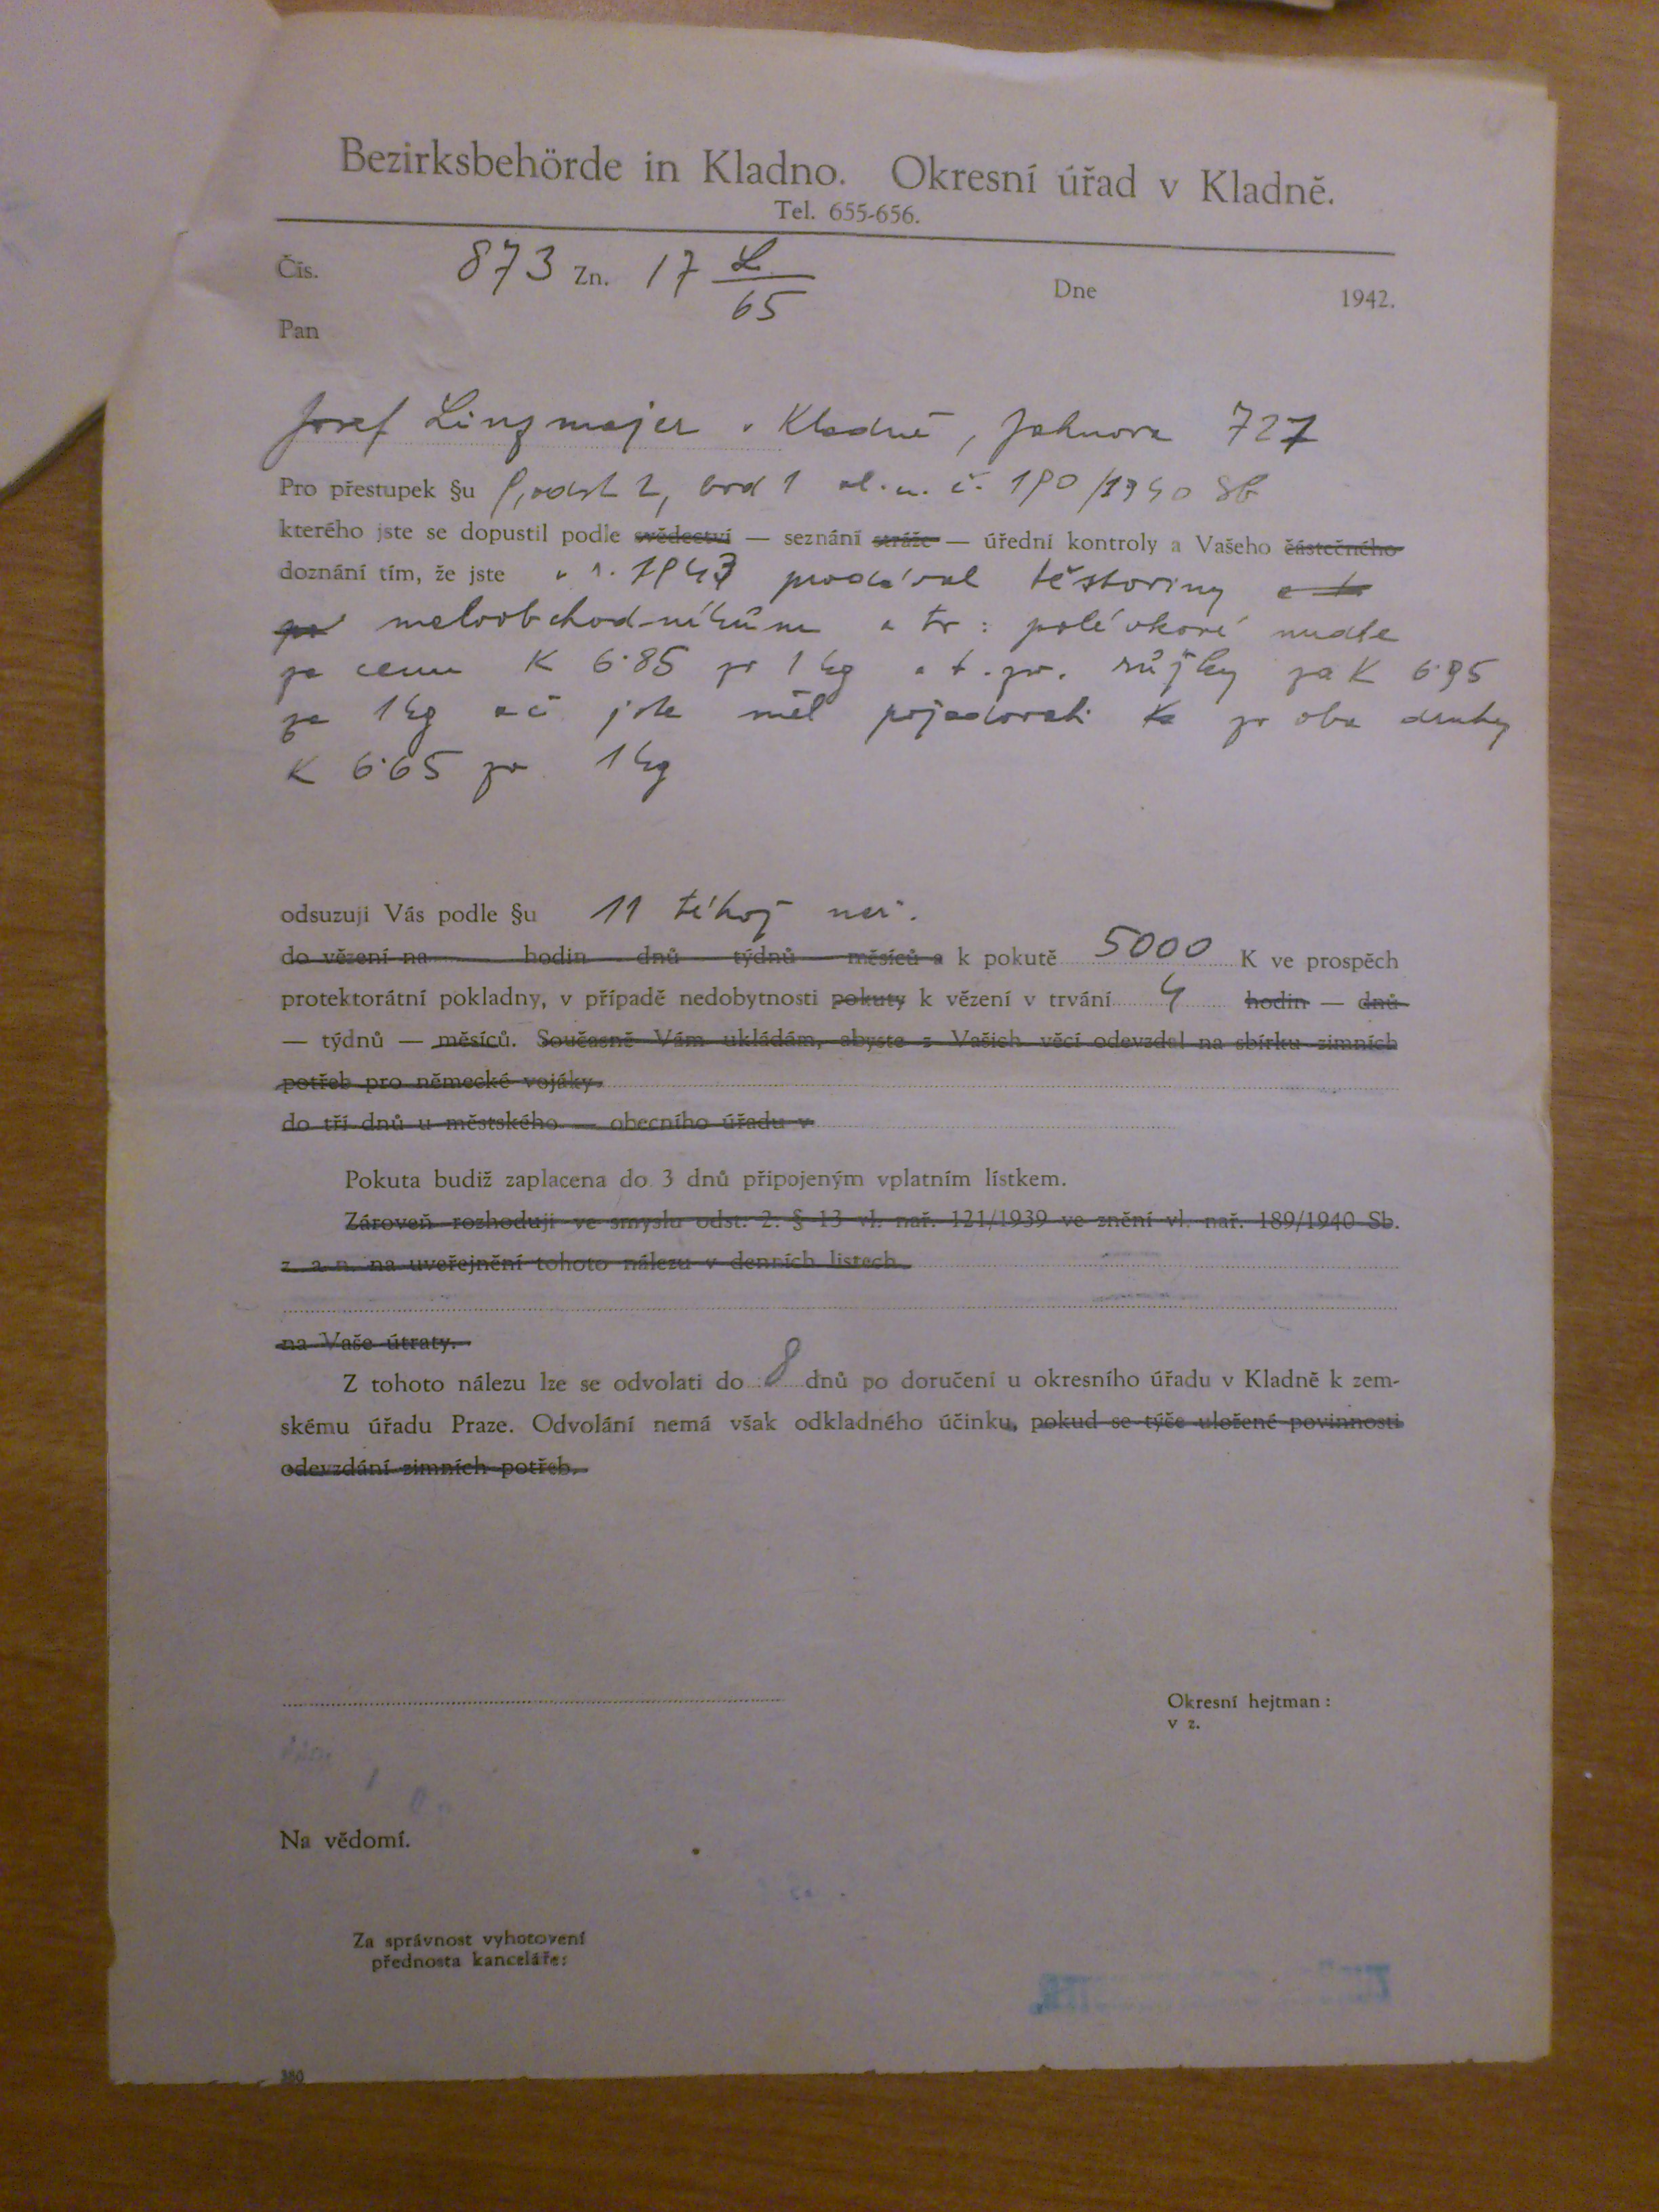 Bezirksbehörde in Kladno. Okresní úřad v Kladně.
Tel. 655-656.
Čís. 873 Zn. 17 L/65
Dne 1942.
Pan
Josef Linzmajer v Kladně, Jahnova 727
Pro přestupek §u odst 2, bod 1 vl. n. č. 190/1940 Sb
kterého jste se dopustil podle svědectví — seznání stráže — úřední kontroly a Vašeho částečného
doznání tím, že jste v r. 1943 prodával těstoviny
maloobchodníkům a to: polévkové nudle
za cenu K 6·85 za 1 kg a t. zv. růžky za K 6·95
za 1 kg ač jste měl požadovati za oba druhy
K 6·65 za 1 kg
odsuzuji Vás podle §u 11 téhož nař.
do vězení na hodin dnů týdnů měsíců a k pokutě 5000 K ve prospěch
protektorátní pokladny, v případě nedobytnosti pokuty k vězení v trvání 4 hodin — dnů
— týdnů — měsíců. Současně Vám ukládám, abyste z Vašich věcí odevzdal na sbírku zimních
potřeb pro německé vojáky
do tří dnů u městského — obecního úřadu v
Pokuta budiž zaplacena do 3 dnů připojeným vplatním lístkem.
Zároveň rozhoduji ve smyslu odst. 2. § 13 vl. nař. 121/1939 ve znění vl. nař. 189/1940 Sb.
z. a n. na uveřejnění tohoto nálezu v denních listech
na Vaše útraty.
Z tohoto nálezu lze se odvolati do 8 dnů po doručení u okresního úřadu v Kladně k zem-
skému úřadu Praze. Odvolání nemá však odkladného účinku, pokud se týče uložené povinnosti
odevzdání zimních potřeb.
Okresní hejtman:
v z.
Na vědomí.
Za správnost vyhotovení
přednosta kanceláře:
380